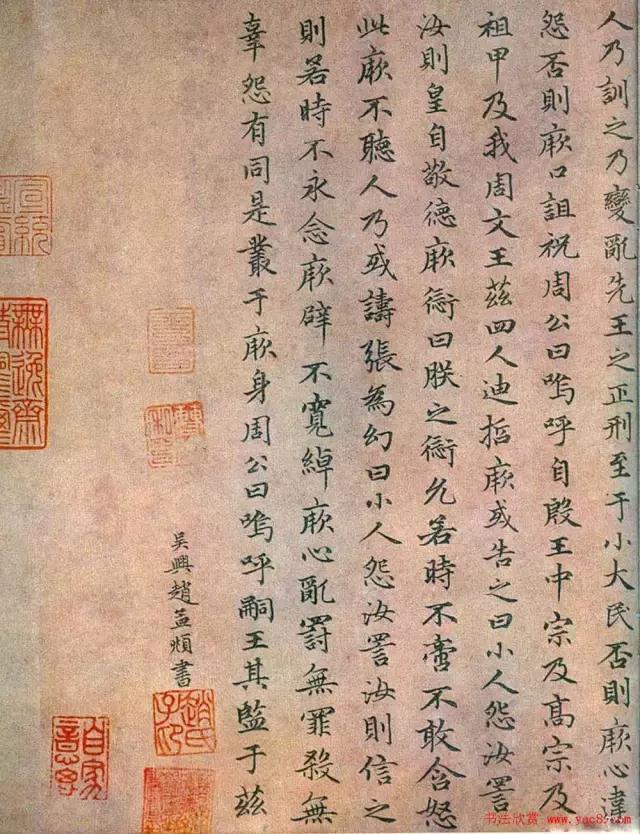 人乃訓之乃變亂先王之正刑至于小大民否則厥心違
怨否則厥口詛祝周公曰嗚呼自殷王中宗及高宗及
祖甲及我周文王茲四人迪哲厥或告之曰小人怨汝詈
汝則皇自敬德厥愆曰朕之愆允若時不啻不敢含怒
此厥不聽人乃或譸張為幻曰小人怨汝詈汝則信之
則若時不永念厥辟不寬綽厥心亂罰無罪殺無
辜怨有同是叢于厥身周公曰嗚呼嗣王其監于茲
吳興趙孟頫書
趙氏子昂
無逸齋
书法欣赏 www.yac8.com